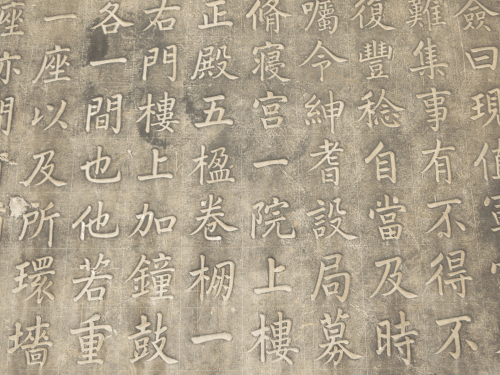 僉曰現值
難集事有不得不
復豐稔自當及時
囑令紳耆設局募
脩寢宮一院上樓
正殿五楹卷棚一
右門樓上加鐘鼓
各一間也他若重
一座以及所環墻
座亦